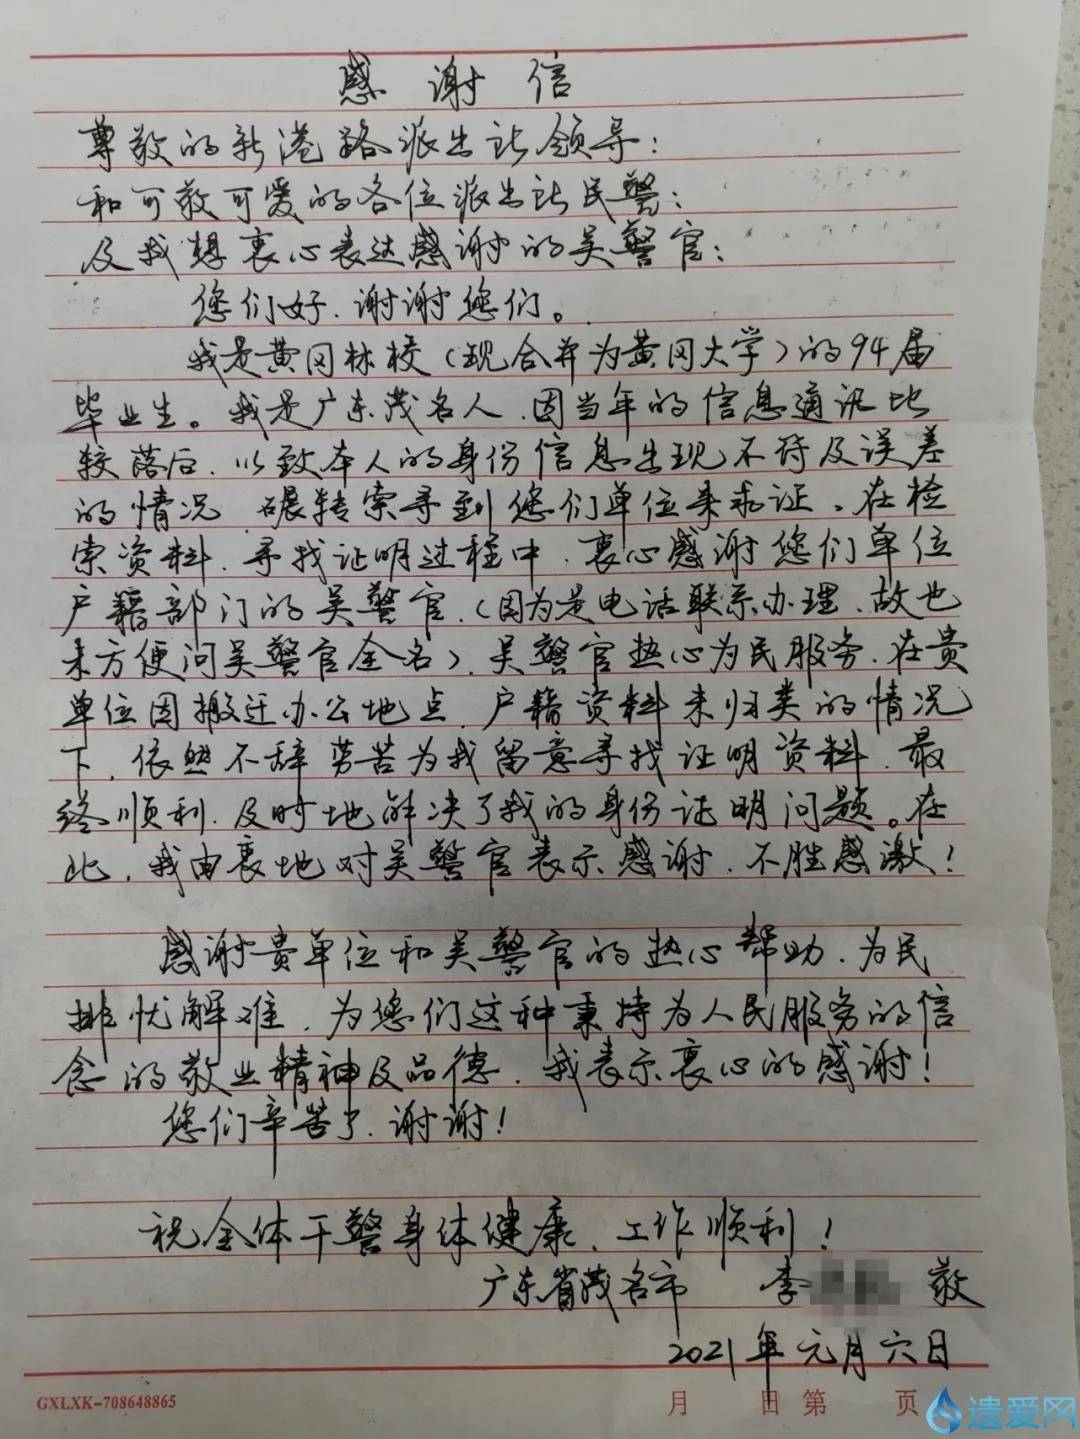 感谢信
尊敬的新港路派出所领导：
和可敬可爱的各位派出所民警：
及我想衷心表达感谢的吴警官：
您们好、谢谢您们。
我是黄冈林校（现合并为黄冈大学）的94届
毕业生。我是广东茂名人、因当年的信息通讯比
较落后、以致本人的身份信息出现不符及误差
的情况、碾转索寻到您们单位来求证。在检
索资料、寻找证明过程中、衷心感谢您们单位
户籍部门的吴警官、（因为是电话联系办理、故也
未方便问吴警官全名）、吴警官热心为民服务、在贵
单位因搬迁办公地点、户籍资料未归类的情况
下、依然不辞劳苦为我留意寻找证明资料、最
终顺利、及时地解决了我的身份证明问题。在
此、我由衷地对吴警官表示感谢、不胜感激！
感谢贵单位和吴警官的热心帮助、为民
排忧解难、为您们这种秉持为人民服务的信
念的敬业精神及品德、我表示衷心的感谢！
您们辛苦了、谢谢！
祝全体干警身体健康、工作顺利！
广东省茂名市 李 敬
2021年元月六日
GXLXK-708648865 月 日 第 页
遗爱网